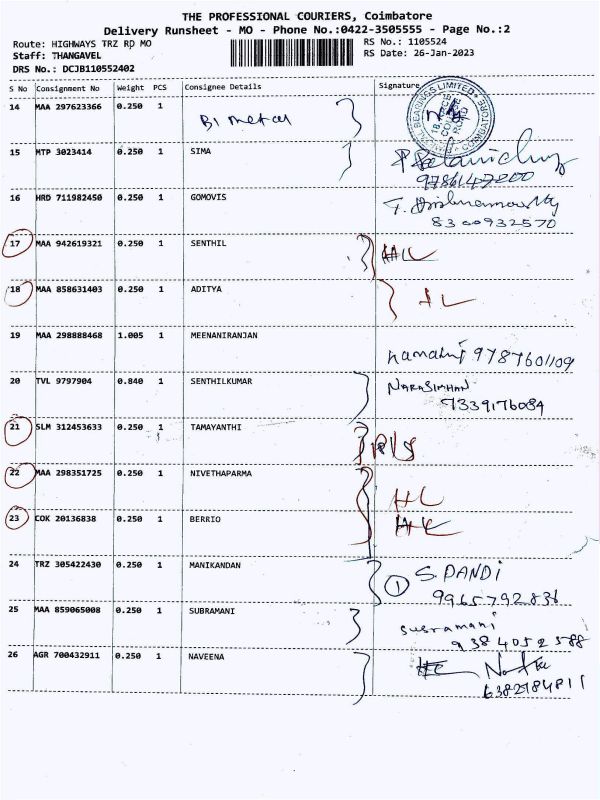 THE PROFESSIONAL COURIERS, Coimbatore
Delivery Runsheet - MO - Phone No.:0422-3505555 - Page No.:2
Route: HIGHWAYS TRZ RD MO RS No.: 1105524
Staff: THANGAVEL RS Date: 26-Jan-2023
DRS No.: DCJB110552402
S No Consignment No Weight PCS Consignee Details Signature
14 MAA 297623366 0.250 1 Bi metal
BEARINGS LIMITED COIMBATORE
15 MTP 3023414 0.250 1 SIMA
9786147200
16 HRD 711982450 0.250 1 GOMOVIS
8300932570
17 MAA 942619321 0.250 1 SENTHIL HL
18 MAA 858631403 0.250 1 ADITYA HL
19 MAA 298888468 1.005 1 MEENANIRANJAN
9787601109
20 TVL 9797904 0.840 1 SENTHILKUMAR NARASIMHAN
7339176084
21 SLM 312453633 0.250 1 TAMAYANTHI
22 MAA 298351725 0.250 1 NIVETHAPARMA HL
23 COK 20136838 0.250 1 BERRIO HL
24 TRZ 305422430 0.250 1 MANIKANDAN 1 S. PANDI
9965792836
25 MAA 859065008 0.250 1 SUBRAMANI subramani
9384052588
26 AGR 700432911 0.250 1 NAVEENA
6382184811